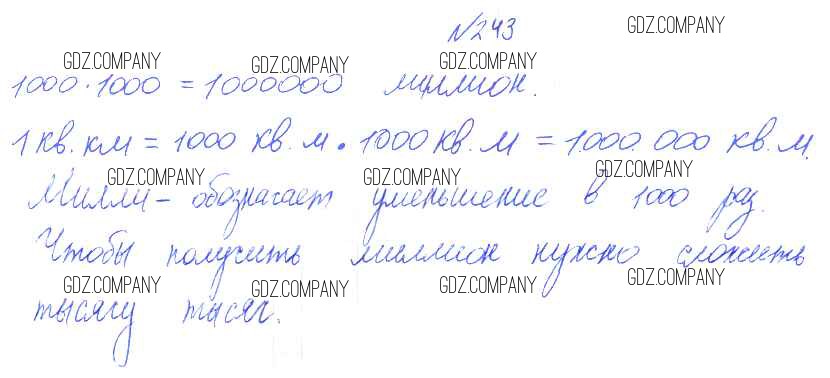 №243
1000·1000 = 1000000 миллион.
1 кв. км = 1000 кв. м · 1000 кв. м = 1.000.000 кв. м.
Милли - обозначает уменьшение в 1000 раз.
Чтобы получить миллион нужно сложить
тысячу тысяч.
GDZ.COMPANY
GDZ.COMPANY
GDZ.COMPANY
GDZ.COMPANY
GDZ.COMPANY
GDZ.COMPANY
GDZ.COMPANY
GDZ.COMPANY
GDZ.COMPANY
GDZ.COMPANY
GDZ.COMPANY
GDZ.COMPANY